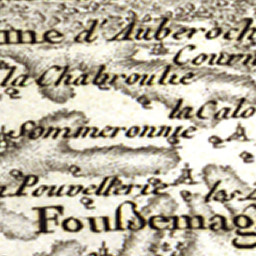 me d'Auberoch
Courn
la Chabroulie
la Calo
Sommeronnie
Pouvellerie
las
Foußemag